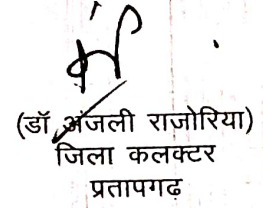 (डॉ. अंजली राजोरिया)
जिला कलक्टर
प्रतापगढ़